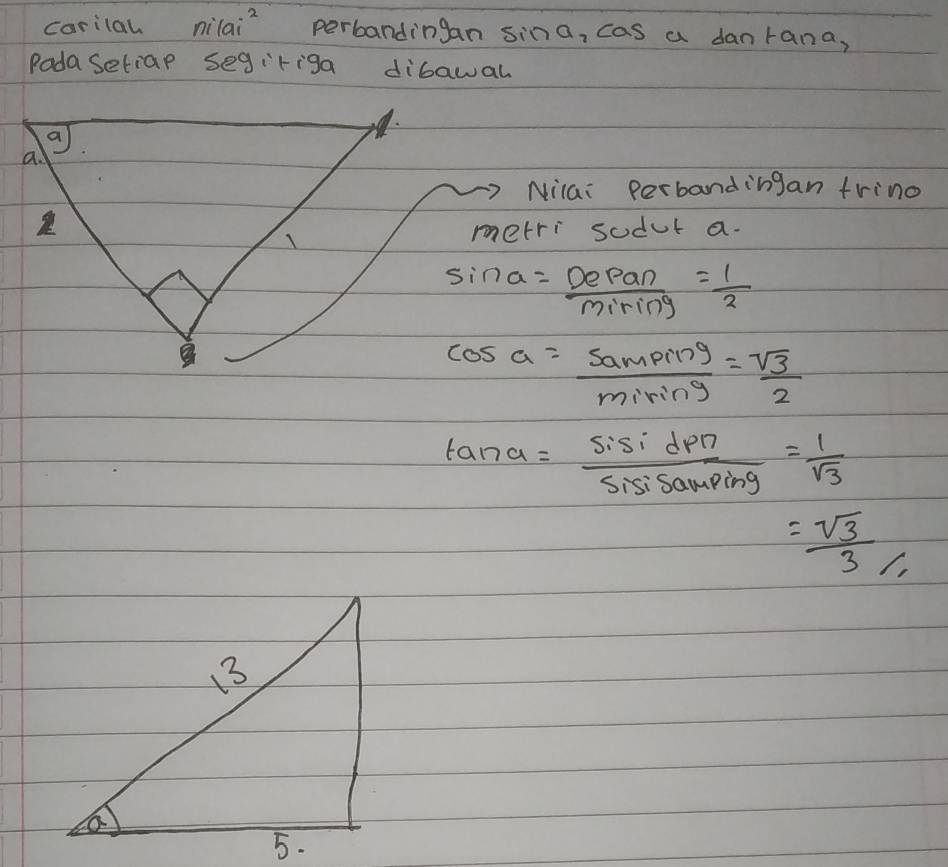 carilah nilai² perbandingan sin a, cos a dan tan a,
pada setiap segitiga dibawah
a
a.
1
Nilai Perbandingan trino
metri sudut a.
sin a = Depan/miring = 1/2
cos a = samping/miring = √3/2
tan a = sisi dpn/sisi samping = 1/√3
= √3/3 //.
13
a
5.